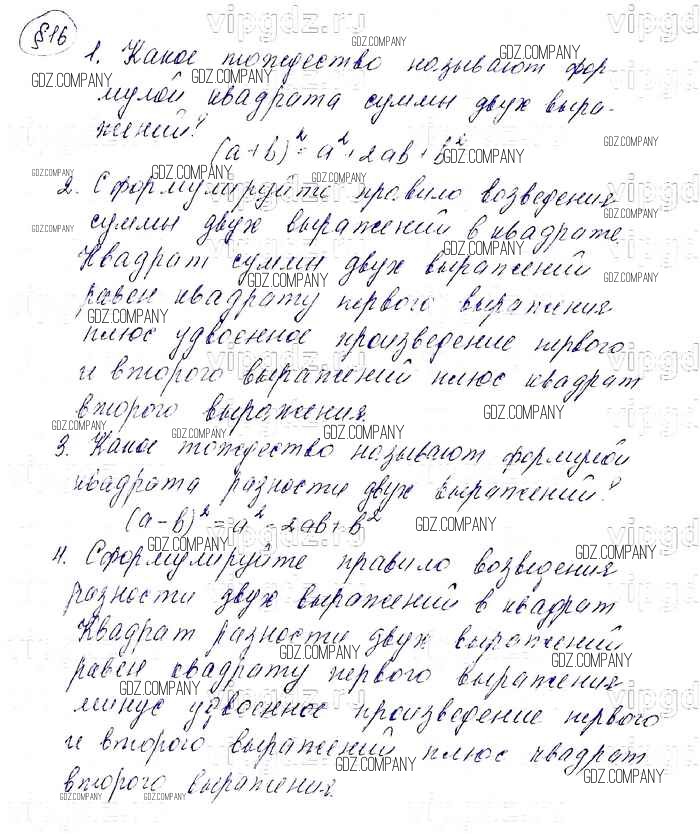 §16
1. Какое тождество называют фор-
мулой квадрата суммы двух выра-
жений?
(a+b)² = a² + 2ab + b²
2. Сформулируйте правило возведения
суммы двух выражений в квадрате.
Квадрат суммы двух выражений
равен квадрату первого выражения
плюс удвоенное произведение первого
и второго выражений плюс квадрат
второго выражения.
3. Какое тождество называют формулой
квадрата разности двух выражений?
(a-b)² = a² - 2ab + b²
4. Сформулируйте правило возведения
разности двух выражений в квадрат
Квадрат разности двух выражений
равен квадрату первого выражения
минус удвоенное произведение первого
и второго выражений плюс квадрат
второго выражения.
vipgdz.ru
GDZ.COMPANY